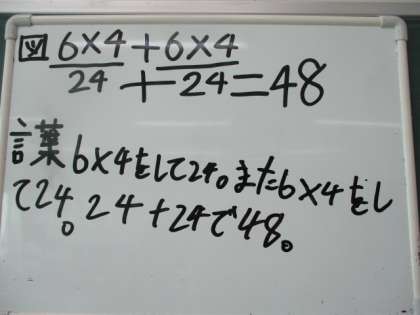 図 6×4+6×4
24 + 24=48
言葉 6×4をして24。また6×4をし
て24。24+24で48。